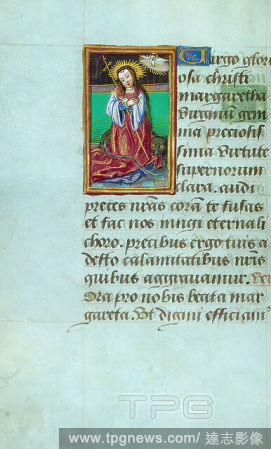 Virgo glori
osa christi
margaretha
Virginū gem
ma preciosis
sima virtute
supernorum
clara. audi
preces nr̄as corā te fusas
et fac nos iungi eternali
choro. precibus ergo tuis a
desto calamitatibus nr̄is
quibus aggravamur.
Ora pro nobis beata mar
gareta. Vt digni efficiam
TPG
www.tpgnews.com/ 達志影像